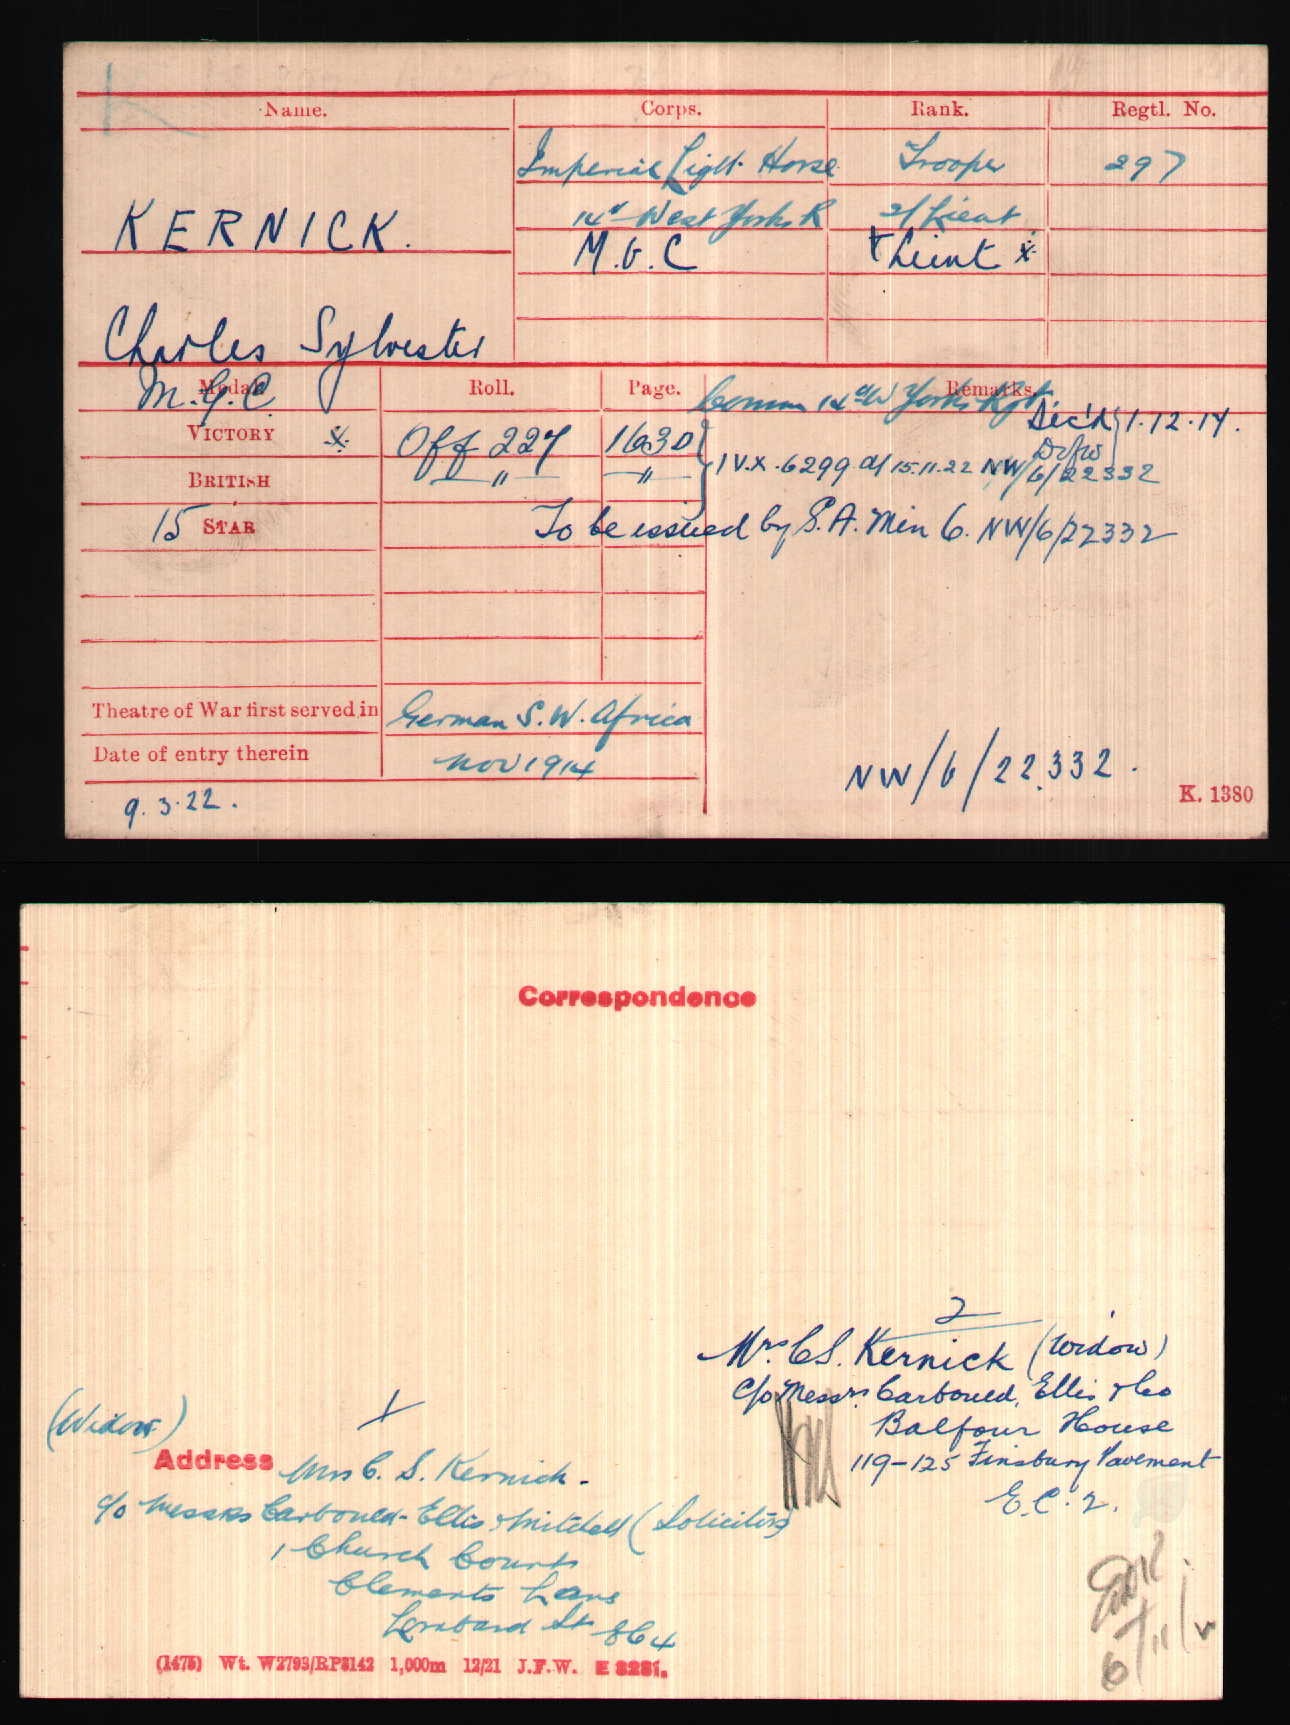 Name. Corps. Rank. Regtl. No.
Imperial Light Horse Trooper 297
14th West Yorks R 2/Lieut
KERNICK. M.G.C Lieut x
Charles Sylvester
M.G.C. Medal Roll. Page. Remarks.
Comm 14th W Yorks Rgt.
VICTORY x Off 227 163D Dec'd 1.12.17.
BRITISH " " IV.X.6299 d/ 15.11.22 NW/6/22332
15 STAR To be issued by S.A. Min 6. NW/6/22332
Theatre of War first served in German S.W. Africa
Date of entry therein Nov 1914
NW/6/22332.
9.3.22. K. 1380
Correspondence
2
Mrs. C.S. Kernick (Widow)
c/o Messrs. Carboned, Ellis & Co
Balfour House
119-125 Finsbury Pavement
E.C.2.
(Widow)
Address Mrs C. S. Kernick.
c/o Messrs Carboned-Ellis & Mitchell (Solicitors)
1 Church Court
Clements Lane
Lombard St EC4
(1475) Wt. W2793/RP3142 1,000m 12/21 J.F.W. E 3281.